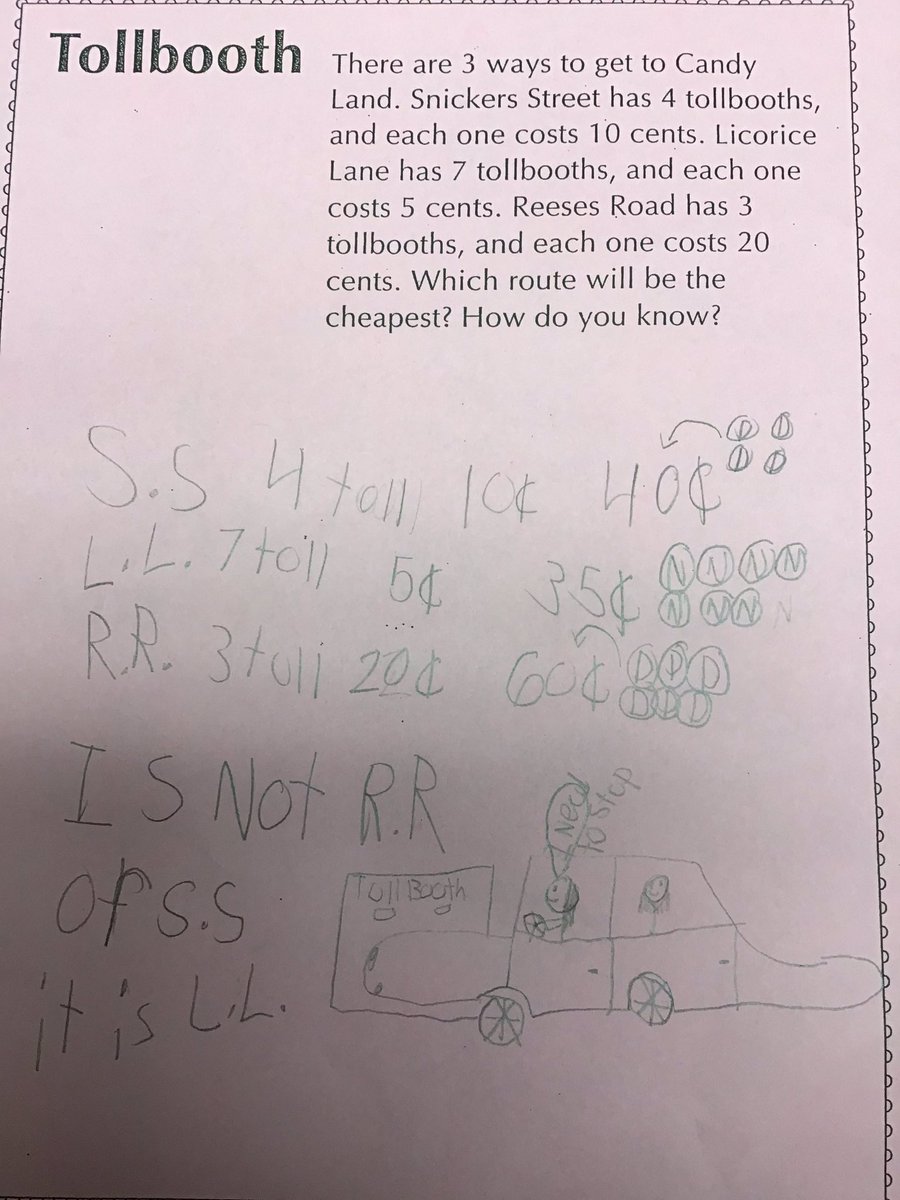 Tollbooth
There are 3 ways to get to Candy
Land. Snickers Street has 4 tollbooths,
and each one costs 10 cents. Licorice
Lane has 7 tollbooths, and each one
costs 5 cents. Reeses Road has 3
tollbooths, and each one costs 20
cents. Which route will be the
cheapest? How do you know?
D D
S.S 4 toll 10¢ 40¢ D D
L.L. 7 toll 5¢ 35¢ N N N N
N N N N
R.R. 3 toll 20¢ 60¢ D D D
D D D
IS Not R.R
Or S.S
it is L.L.
I Need
to Stop
Toll Booth